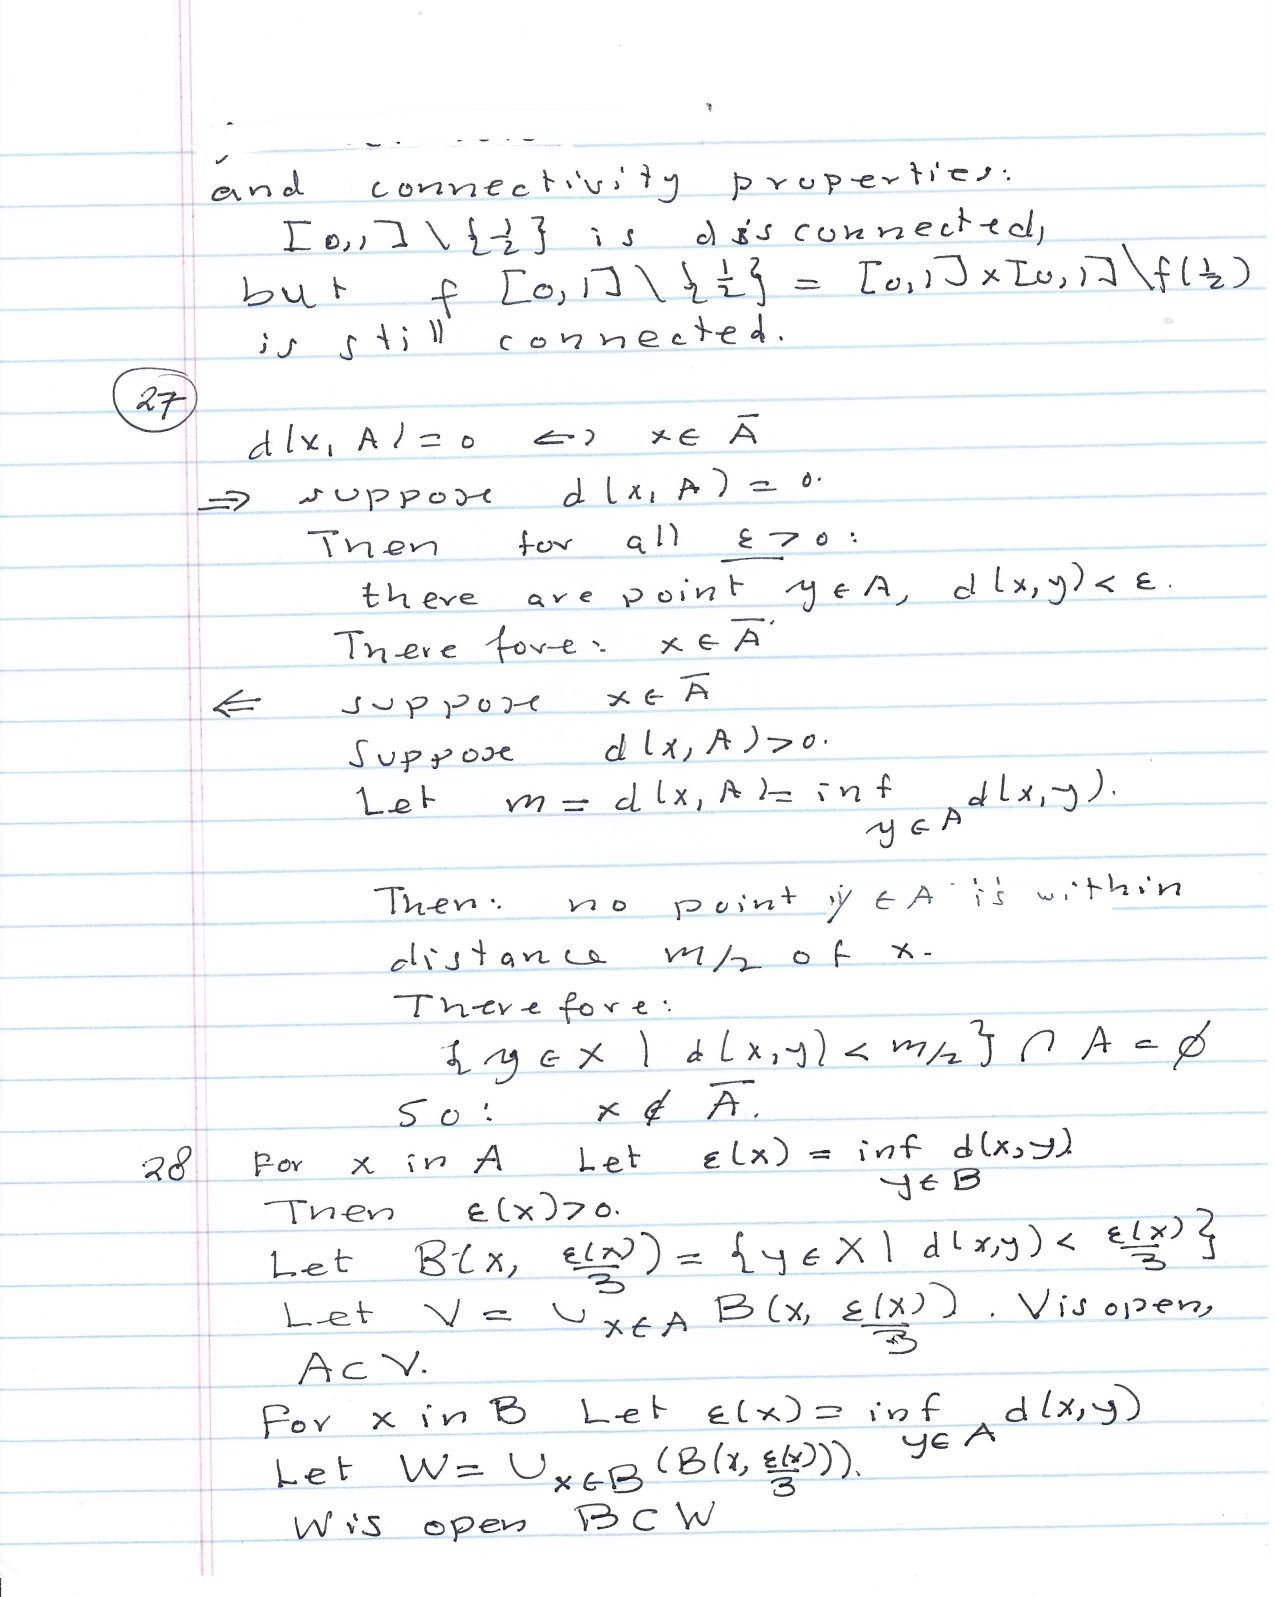 and connectivity properties:
[0,1] \ {1/2} is disconnected,
but f [0,1] \ {1/2} = [0,1] x [0,1] \ f(1/2)
is still connected.
27
d(x, A) = 0 <=> x ∈ Ā
⇒ suppose d(x, A) = 0.
Then for all ε > 0:
there are point y ∈ A, d(x,y) < ε.
There fore: x ∈ Ā
⇐ suppose x ∈ Ā
Suppose d(x, A) > 0.
Let m = d(x, A) = inf y ∈ A d(x,y).
Then: no point y ∈ A is within
distance m/2 of x.
There fore:
{y ∈ X | d(x,y) < m/2} ∩ A = ∅
So: x ∉ Ā.
28 For x in A Let ε(x) = inf y∈B d(x,y)
Then ε(x)>0.
Let B(x, ε(x)/3) = {y ∈ X | d(x,y) < ε(x)/3}
Let V = ∪ x∈A B(x, ε(x)/3). V is open,
A ⊂ V.
For x in B Let ε(x) = inf y∈A d(x,y)
Let W = ∪ x∈B (B(x, ε(x)/3)).
W is open B ⊂ W